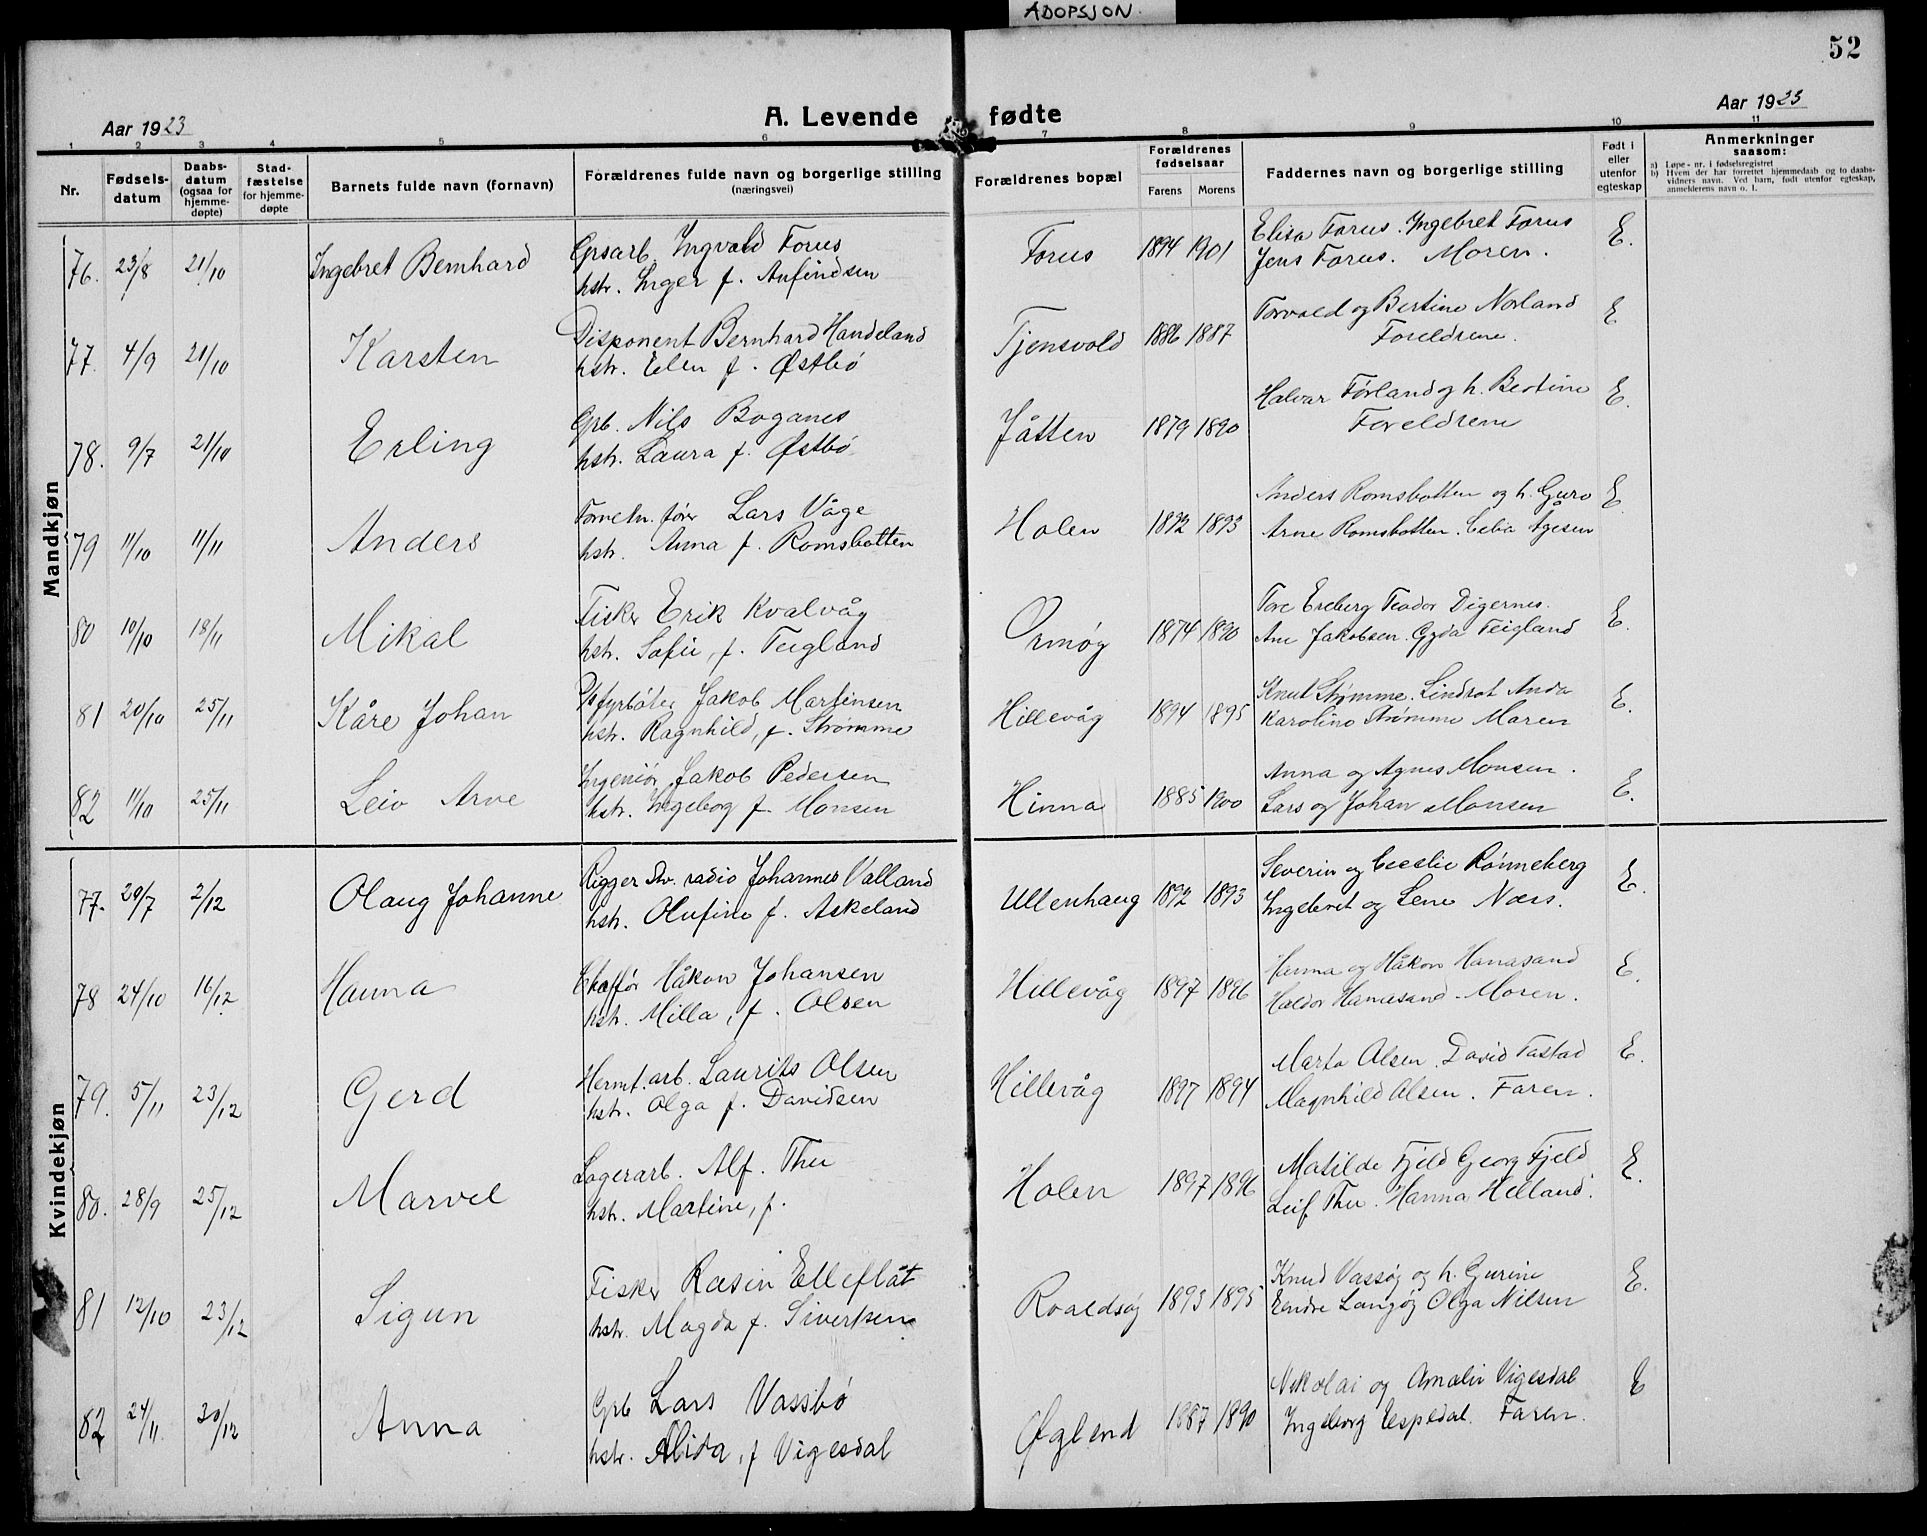 ADOPSJON.
52
Aar 1923
A. Levende fødte
Aar 1923
1 2 3 4 5 6 7 8 9 10 11
Nr.
Fødselsdatum
Daabsdatum (ogsaa for hjemmedøpte)
Stadfæstelse for hjemmedøpte
Barnets fulde navn (fornavn)
Forældrenes fulde navn og borgerlige stilling (næringsvei)
Forældrenes bopæl
Forældrenes fødselsaar
Farens Morens
Faddernes navn og borgerlige stilling
Født i eller utenfor egteskap
Anmerkninger saasom:
a) Løpe-nr. i fødselsregistret
b) Hvem der har forrettet hjemmedaab og to daabsvidners navn. Ved barn, født utenfor egteskap, anmelderens navn o. l.
Mandkjøn
76. 23/8 21/10 Ingebret Bernhard Grsarb. Ingvald Forus Forus 1894 1901 Elisa Forus. Ingebret Forus E.
hstr. Inger f. Anfindsen Jens Forus. Moren.
77. 4/9 21/10 Karsten Disponent Bernhard Handeland Tjensvold 1886 1887 Torvald og Bertine Norland E
hstr. Elen f. Østbö Foreldrene.
78. 9/7 21/10 Erling Grb. Nils Boganes Jåtten 1879 1890 Halvar Førland og h. Bertine E.
hstr. Laura f. Østbö Foreldrene
79 11/10 11/11 Anders Lars Våge Holen 1892 1893 Anders Romsbotten og h. Guro E
hstr. Anna f. Romsbotten Arne Romsbotten. Ågesen
80 10/10 18/11 Mikal Fisker Erik Kvalvåg Ormøy 1874 1890 Tore Teodor Digernes. E.
hstr. Sofie, f. Teigland Ane Jakobsen. Gyda Teigland
81 20/10 25/11 Kåre Johan fyrböter Jakob Martinsen Hillevåg 1894 1895 Knut Strømme. Anda E.
hstr. Ragnhild, f. Strømme Karoline Strömme Maren
82 11/10 25/11 Leiv Arve Ingeniör Jakob Pedersen Hinna 1885 1900 Anna og Agnes Monsen. E.
hstr. Ingeborg f. Monsen Lars og Johan Monsen
Kvindekjøn
77. 20/7 2/12 Olaug Johanne Rigger radio Johannes Valland Ullenhaug 1892 1893 Severin og Cecelie Rönneberg E.
hstr. Olufine f. Askeland Ingebret og Lene Næss.
78 24/10 16/12 Hanna Håkon Johansen Hillevåg 1897 1896 Hanna og Håkon Hanasand E.
hstr. Milla, f. Olsen Haldor Hanasand. Moren.
79. 5/11 23/12 Gerd Hermt.arb. Laurits Olsen Hillevåg 1897 1894 Marta Olsen. David Tastad E.
hstr. Olga f. Davidsen Magnhild Olsen. Faren.
80. 28/9 25/12 Marvel Lagerarb. Alf. Thu Holen 1897 1896 Matilde Fjeld Georg Fjeld E.
hstr. Martine, f. Leif Thu. Hanna Helland.
81 12/10 23/12 Sigun Fisker Rasin Elleflåt Roaldsøy 1893 1895 Knud Vassøy og h. Gurine E.
hstr. Magda f. Sivertsen. Endre Langøy Olga Nilsen
82 24/11 30/12 Anna Grb Lars Vassbö Øglend 1887 1890 Nikolai og Amalie Vigesdal E
hstr. Alida, f Vigesdal Ingeborg Espedal. Faren.